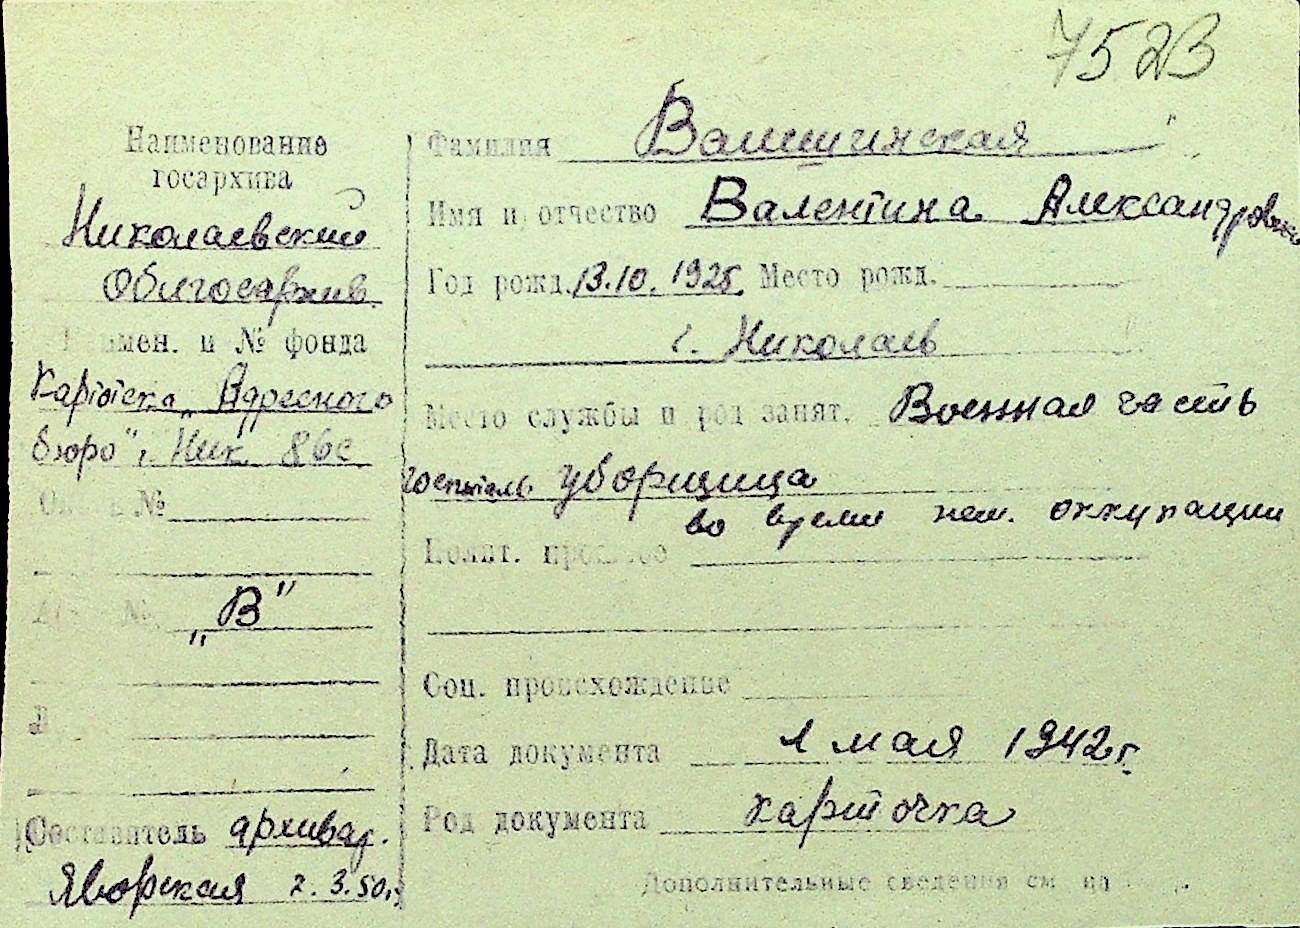 7523
Наименование
госархива
Николаевский
Облгосархив.
Наимен. и № фонда
Картотека „Адресного
бюро", г. Ник. 86с
Опись №
„В"
Составитель архивар.
Яворская 2.3.50 г.
Фамилия
Имя и отчество Валентина Александровна
Год рожд. 13.10.1925. Место рожд.
г. Николаев
Место службы и род занят. Военная часть
госпиталь уборщица
во время нем. оккупации
Полит. прошлое
Соц. происхождение
Дата документа 1 мая 1942 г.
Род документа карточка
Дополнительные сведения см. на